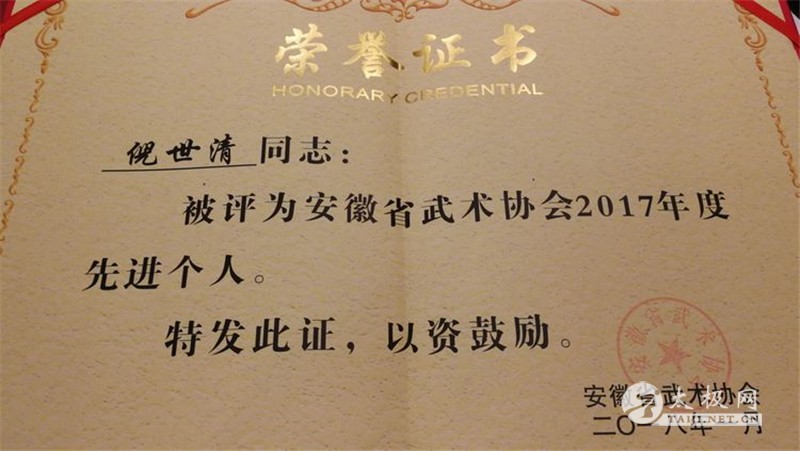 荣誉证书
HONORARY CREDENTIAL
倪世清同志：
被评为安徽省武术协会2017年度
先进个人。
特发此证，以资鼓励。
安徽省武术协
安徽省武术协会
二〇一八年一月
太极网
TAIJI.NET.CN